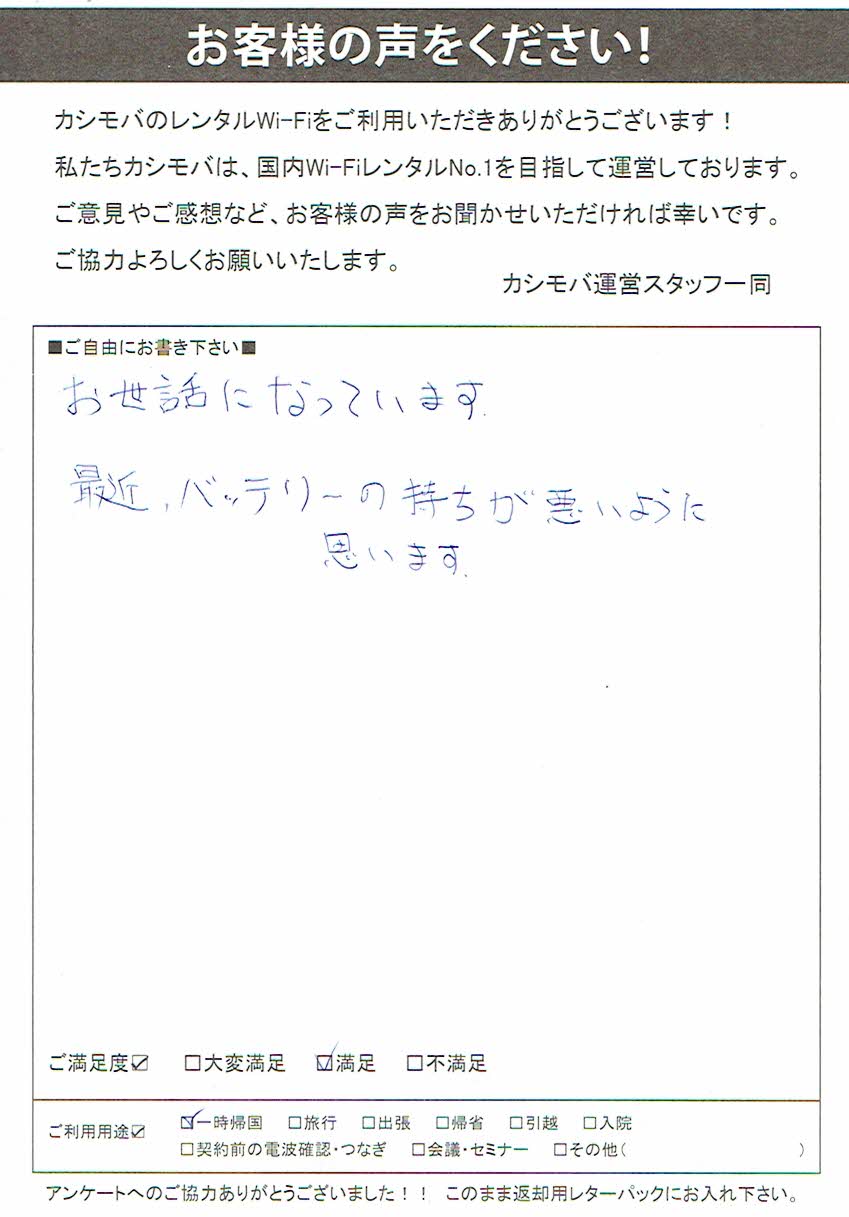 お客様の声をください!
カシモバのレンタルWi-Fiをご利用いただきありがとうございます！
私たちカシモバは、国内Wi-FiレンタルNo.1を目指して運営しております。
ご意見やご感想など、お客様の声をお聞かせいただければ幸いです。
ご協力よろしくお願いいたします。
カシモバ運営スタッフ一同
■ご自由にお書き下さい■
お世話になっています.
最近,バッテリーの持ちが悪いように
思います.
ご満足度☑ □大変満足 ☑満足 □不満足
ご利用用途☑ ☑一時帰国 □旅行 □出張 □帰省 □引越 □入院
□契約前の電波確認・つなぎ □会議・セミナー □その他( )
アンケートへのご協力ありがとうございました！！ このまま返却用レターパックにお入れ下さい。